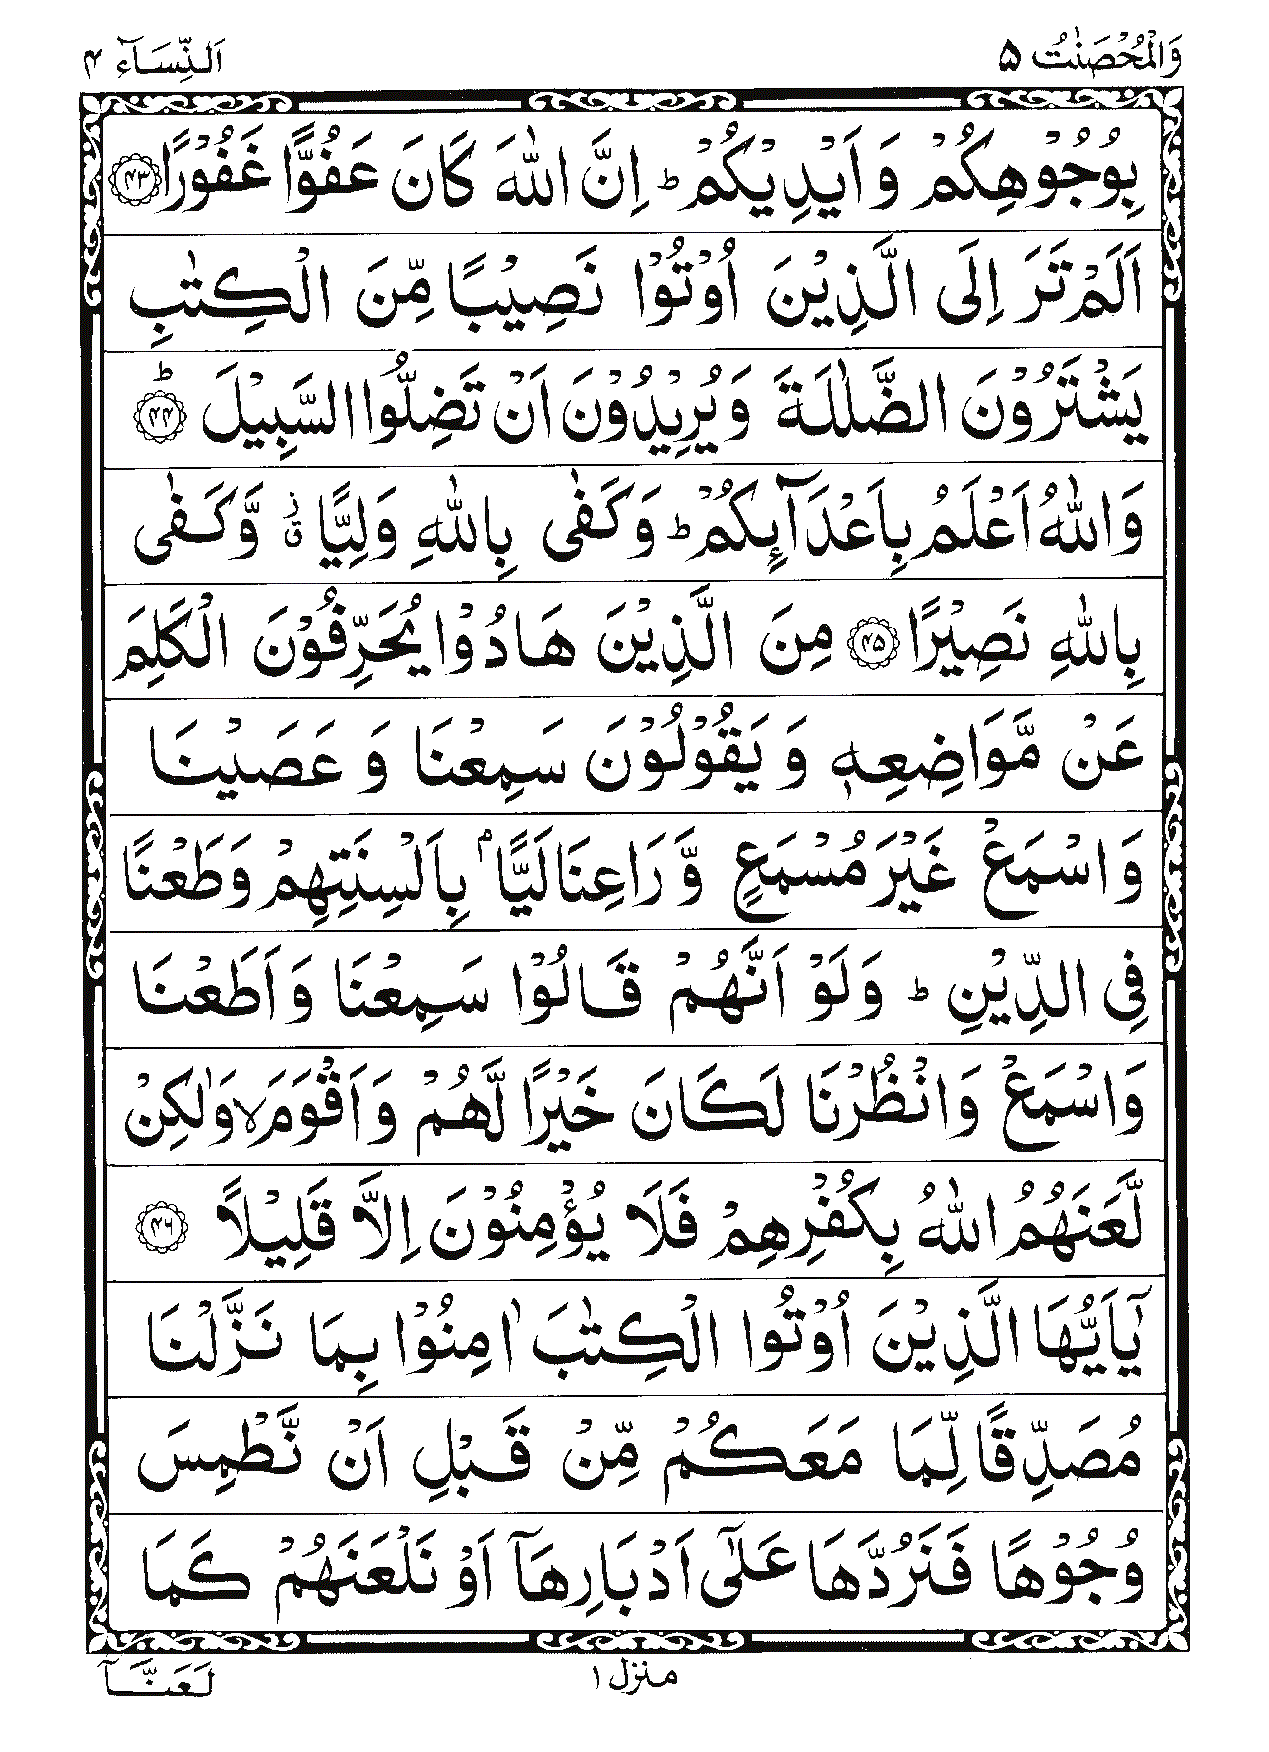 وَالْمُحْصَنٰتُ ۵
اَلنِّسَآء ۴
بِوُجُوْهِكُمْ وَ اَيْدِيْكُمْ ؕ اِنَّ اللّٰهَ كَانَ عَفُوًّا غَفُوْرًا ﴿۴۳﴾
اَلَمْ تَرَ اِلَى الَّذِيْنَ اُوْتُوْا نَصِيْبًا مِّنَ الْكِتٰبِ
يَشْتَرُوْنَ الضَّلٰلَةَ وَ يُرِيْدُوْنَ اَنْ تَضِلُّوا السَّبِيْلَ ﴿۴۴﴾ؕ
وَاللّٰهُ اَعْلَمُ بِاَعْدَآىِٕكُمْ ؕ وَكَفٰى بِاللّٰهِ وَلِيًّا ۗۗ وَّكَفٰى
بِاللّٰهِ نَصِيْرًا ﴿۴۵﴾ مِنَ الَّذِيْنَ هَادُوْا يُحَرِّفُوْنَ الْكَلِمَ
عَنْ مَّوَاضِعِهٖ وَ يَقُوْلُوْنَ سَمِعْنَا وَ عَصَيْنَا
وَ اسْمَعْ غَيْرَ مُسْمَعٍ وَّ رَاعِنَا لَيًّۢا بِاَلْسِنَتِهِمْ وَطَعْنًا
فِى الدِّيْنِ ؕ وَلَوْ اَنَّهُمْ قَالُوْا سَمِعْنَا وَ اَطَعْنَا
وَاسْمَعْ وَانْظُرْنَا لَكَانَ خَيْرًا لَّهُمْ وَاَقْوَمَ ۙ وَلٰكِنْ
لَّعَنَهُمُ اللّٰهُ بِكُفْرِهِمْ فَلَا يُؤْمِنُوْنَ اِلَّا قَلِيْلًا ﴿۴۶﴾
يٰۤاَيُّهَا الَّذِيْنَ اُوْتُوا الْكِتٰبَ اٰمِنُوْا بِمَا نَزَّلْنَا
مُصَدِّقًا لِّمَا مَعَكُمْ مِّنْ قَبْلِ اَنْ نَّطْمِسَ
وُجُوْهًا فَنَرُدَّهَا عَلٰۤى اَدْبَارِهَاۤ اَوْ نَلْعَنَهُمْ كَمَا
منزل ۱
لَعَنَّآ